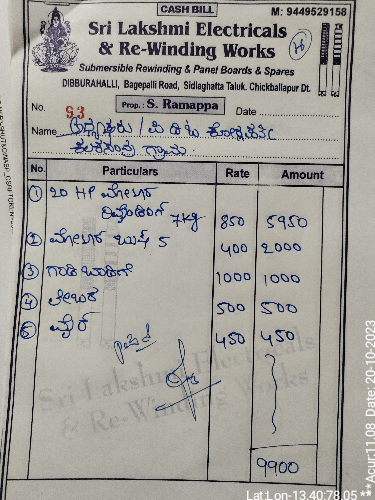 CASH BILL
M: 9449529158
Sri Lakshmi Electricals
& Re-Winding Works
Submersible Rewinding & Panel Boards & Spares
DIBBURAHALLI, Bagepalli Road, Sidlaghatta Taluk. Chickballapur Dt.
No. 93 Prop.: S. Ramappa Date
Name ಅಧ್ಯಕ್ಷರು /
ಗ್ರಾಮ
No. Particulars Rate Amount
1 20 HP ಮೋಟರ್
7kg 850 5950
2 ಮೋಟರ್ ಬುಷ್ 5 400 2000
3 1000 1000
4 ಲೇಬರ 500 500
5 ವೈರ್ 450 450
9900
Sri Lakshmi Electricals
& Re-Winding Works
Lat:Lon-13.40:78.05 ***Acur:11.08, Date: 20-10-2023